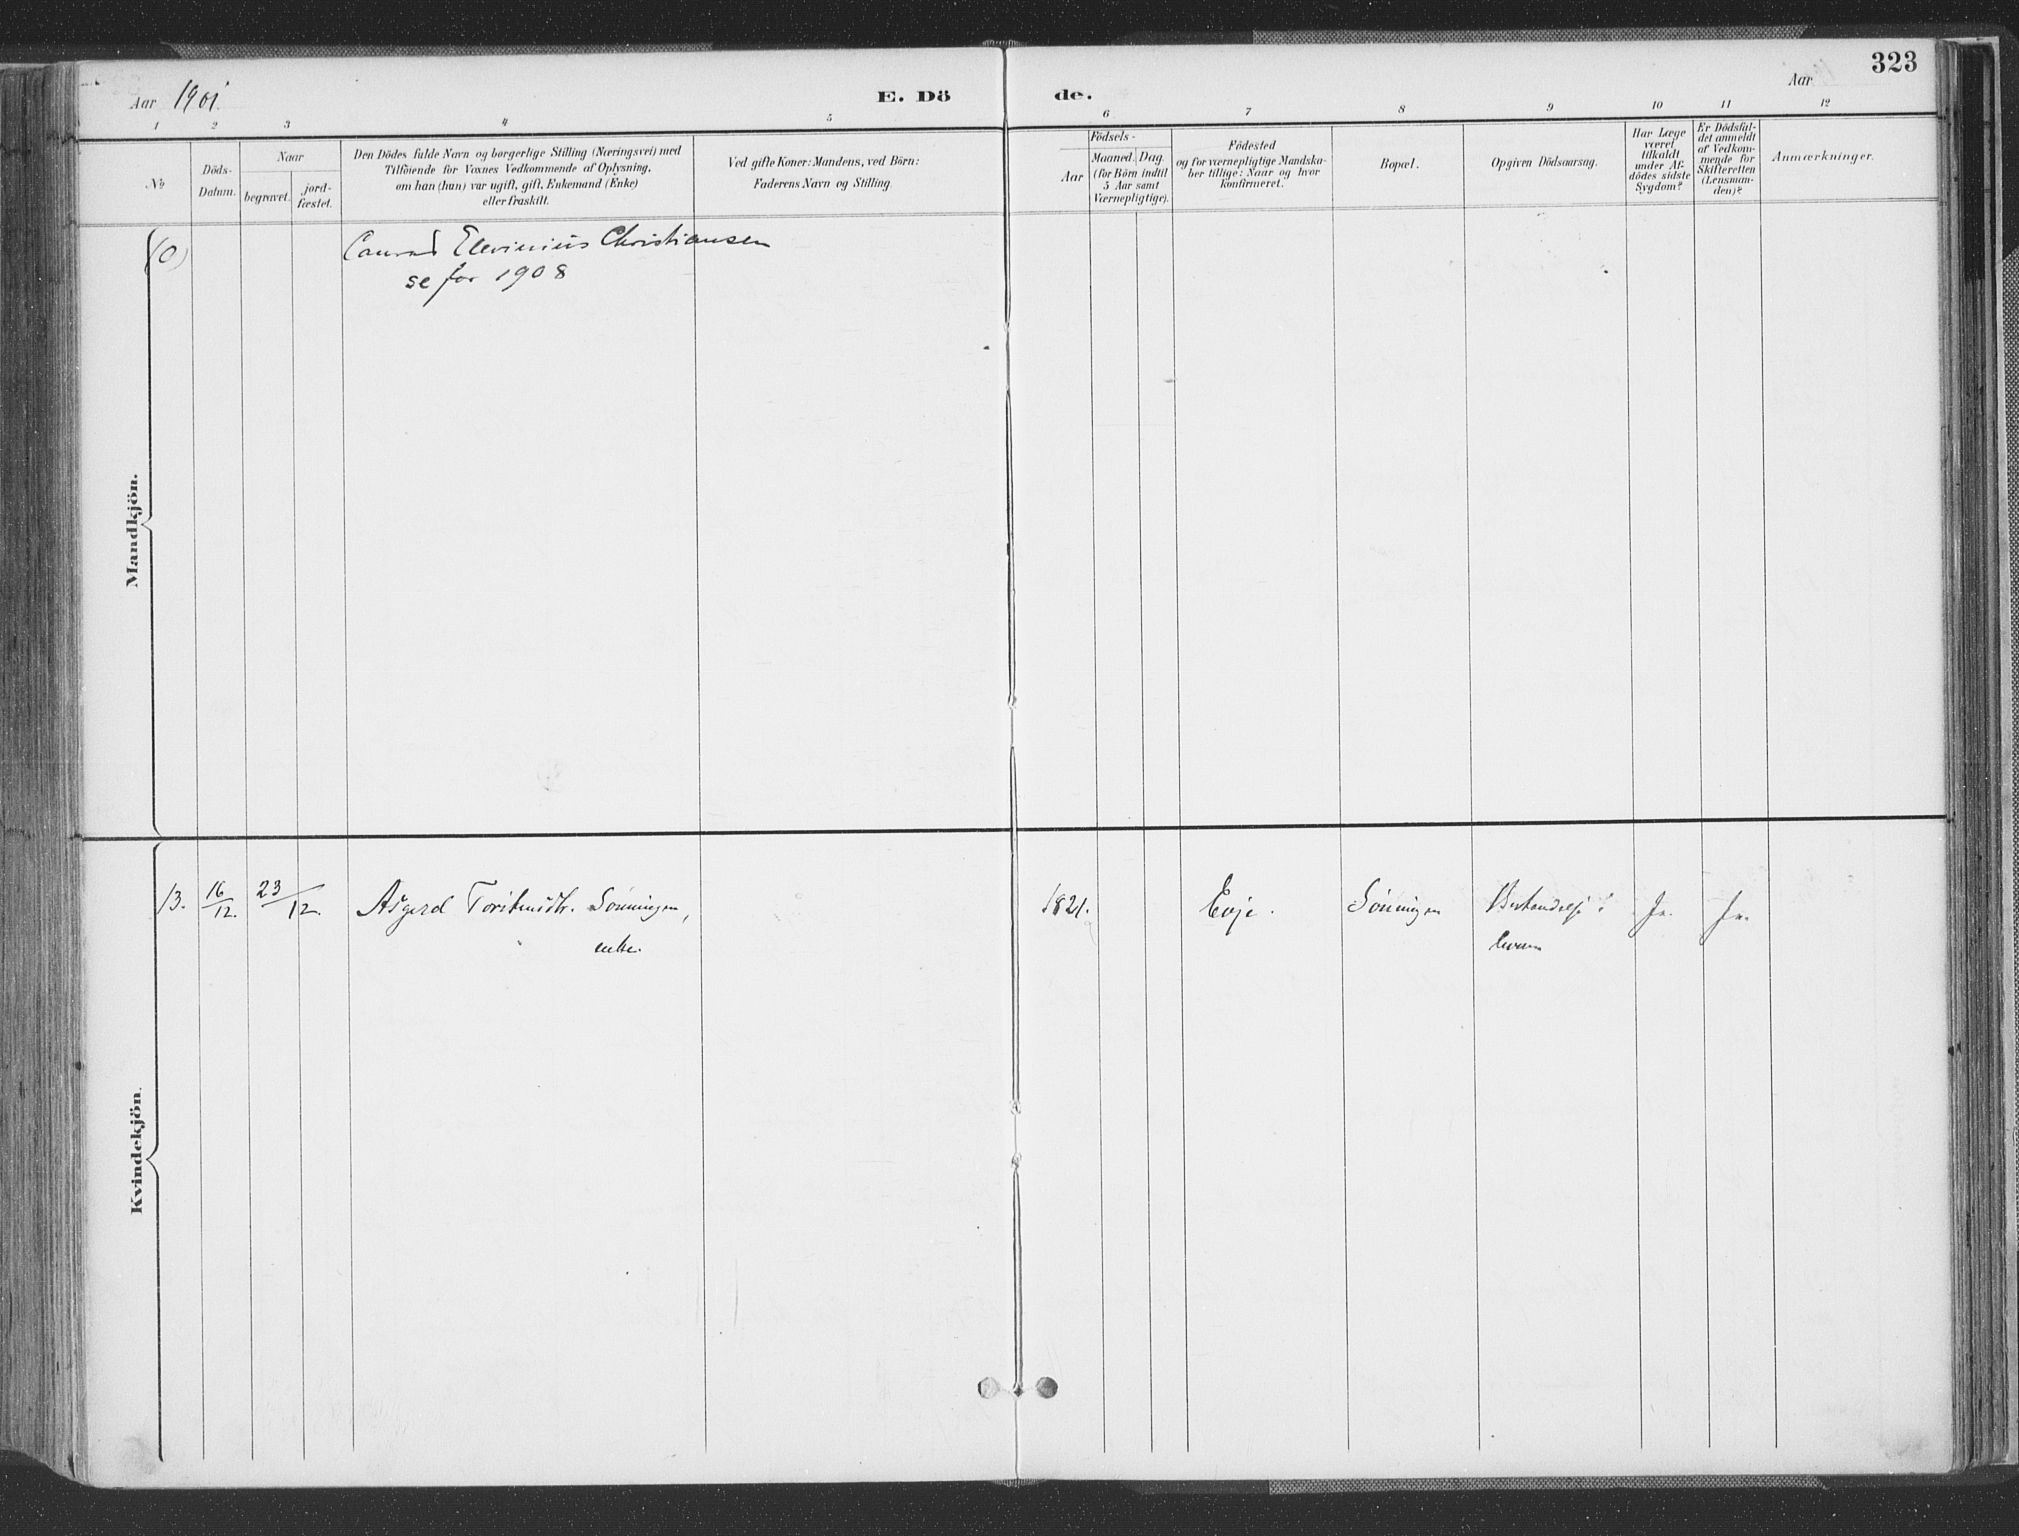 323
Aar 1901.
E. Döde.
Aar
1 2 3 4 5 6 7 8 9 10 11 12
No
Döds-Datum.
Naar
begravet.
jord-fæstet.
Den Dödes fulde Navn og borgerlige Stilling (Næringsvei) med
Tilföiende for Voxnes Vedkommende af Oplysning,
om han (hun) var ugift, gift, Enkemand (Enke)
eller fraskilt.
Ved gifte Koner: Mandens, ved Börn:
Faderens Navn og Stilling.
Födsels-
Aar
Maaned. Dag.
(for Börn indtil
5 Aar samt
Værnepligtige).
Födested
og for værnepligtige Mandska-
ber tillige: Naar og hvor
konfirmeret.
Bopæl.
Opgiven Dödsaarsag.
Har Læge
været
tilkaldt
under Af-
dödes sidste
Sygdom?
Er Dödsfal-
det anmeldt
af Vedkom-
mende for
Skifteretten
(Lensman-
den)?
Anmærkninger.
Mandkjön.
(0)
Conrad Elevinius Christiansen
se for 1908
Kvindekjön.
13. 16/12. 23/12. Asgerd Sönningen, 1821. Evje. Sönningen Ja. Ja.
enke.